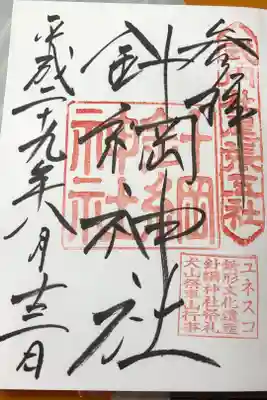 参拝
針綱神社
針綱
神社
平成二十九年八月十三日
ユネスコ
無形文化遺産
針綱神社祭礼
犬山祭車山行事